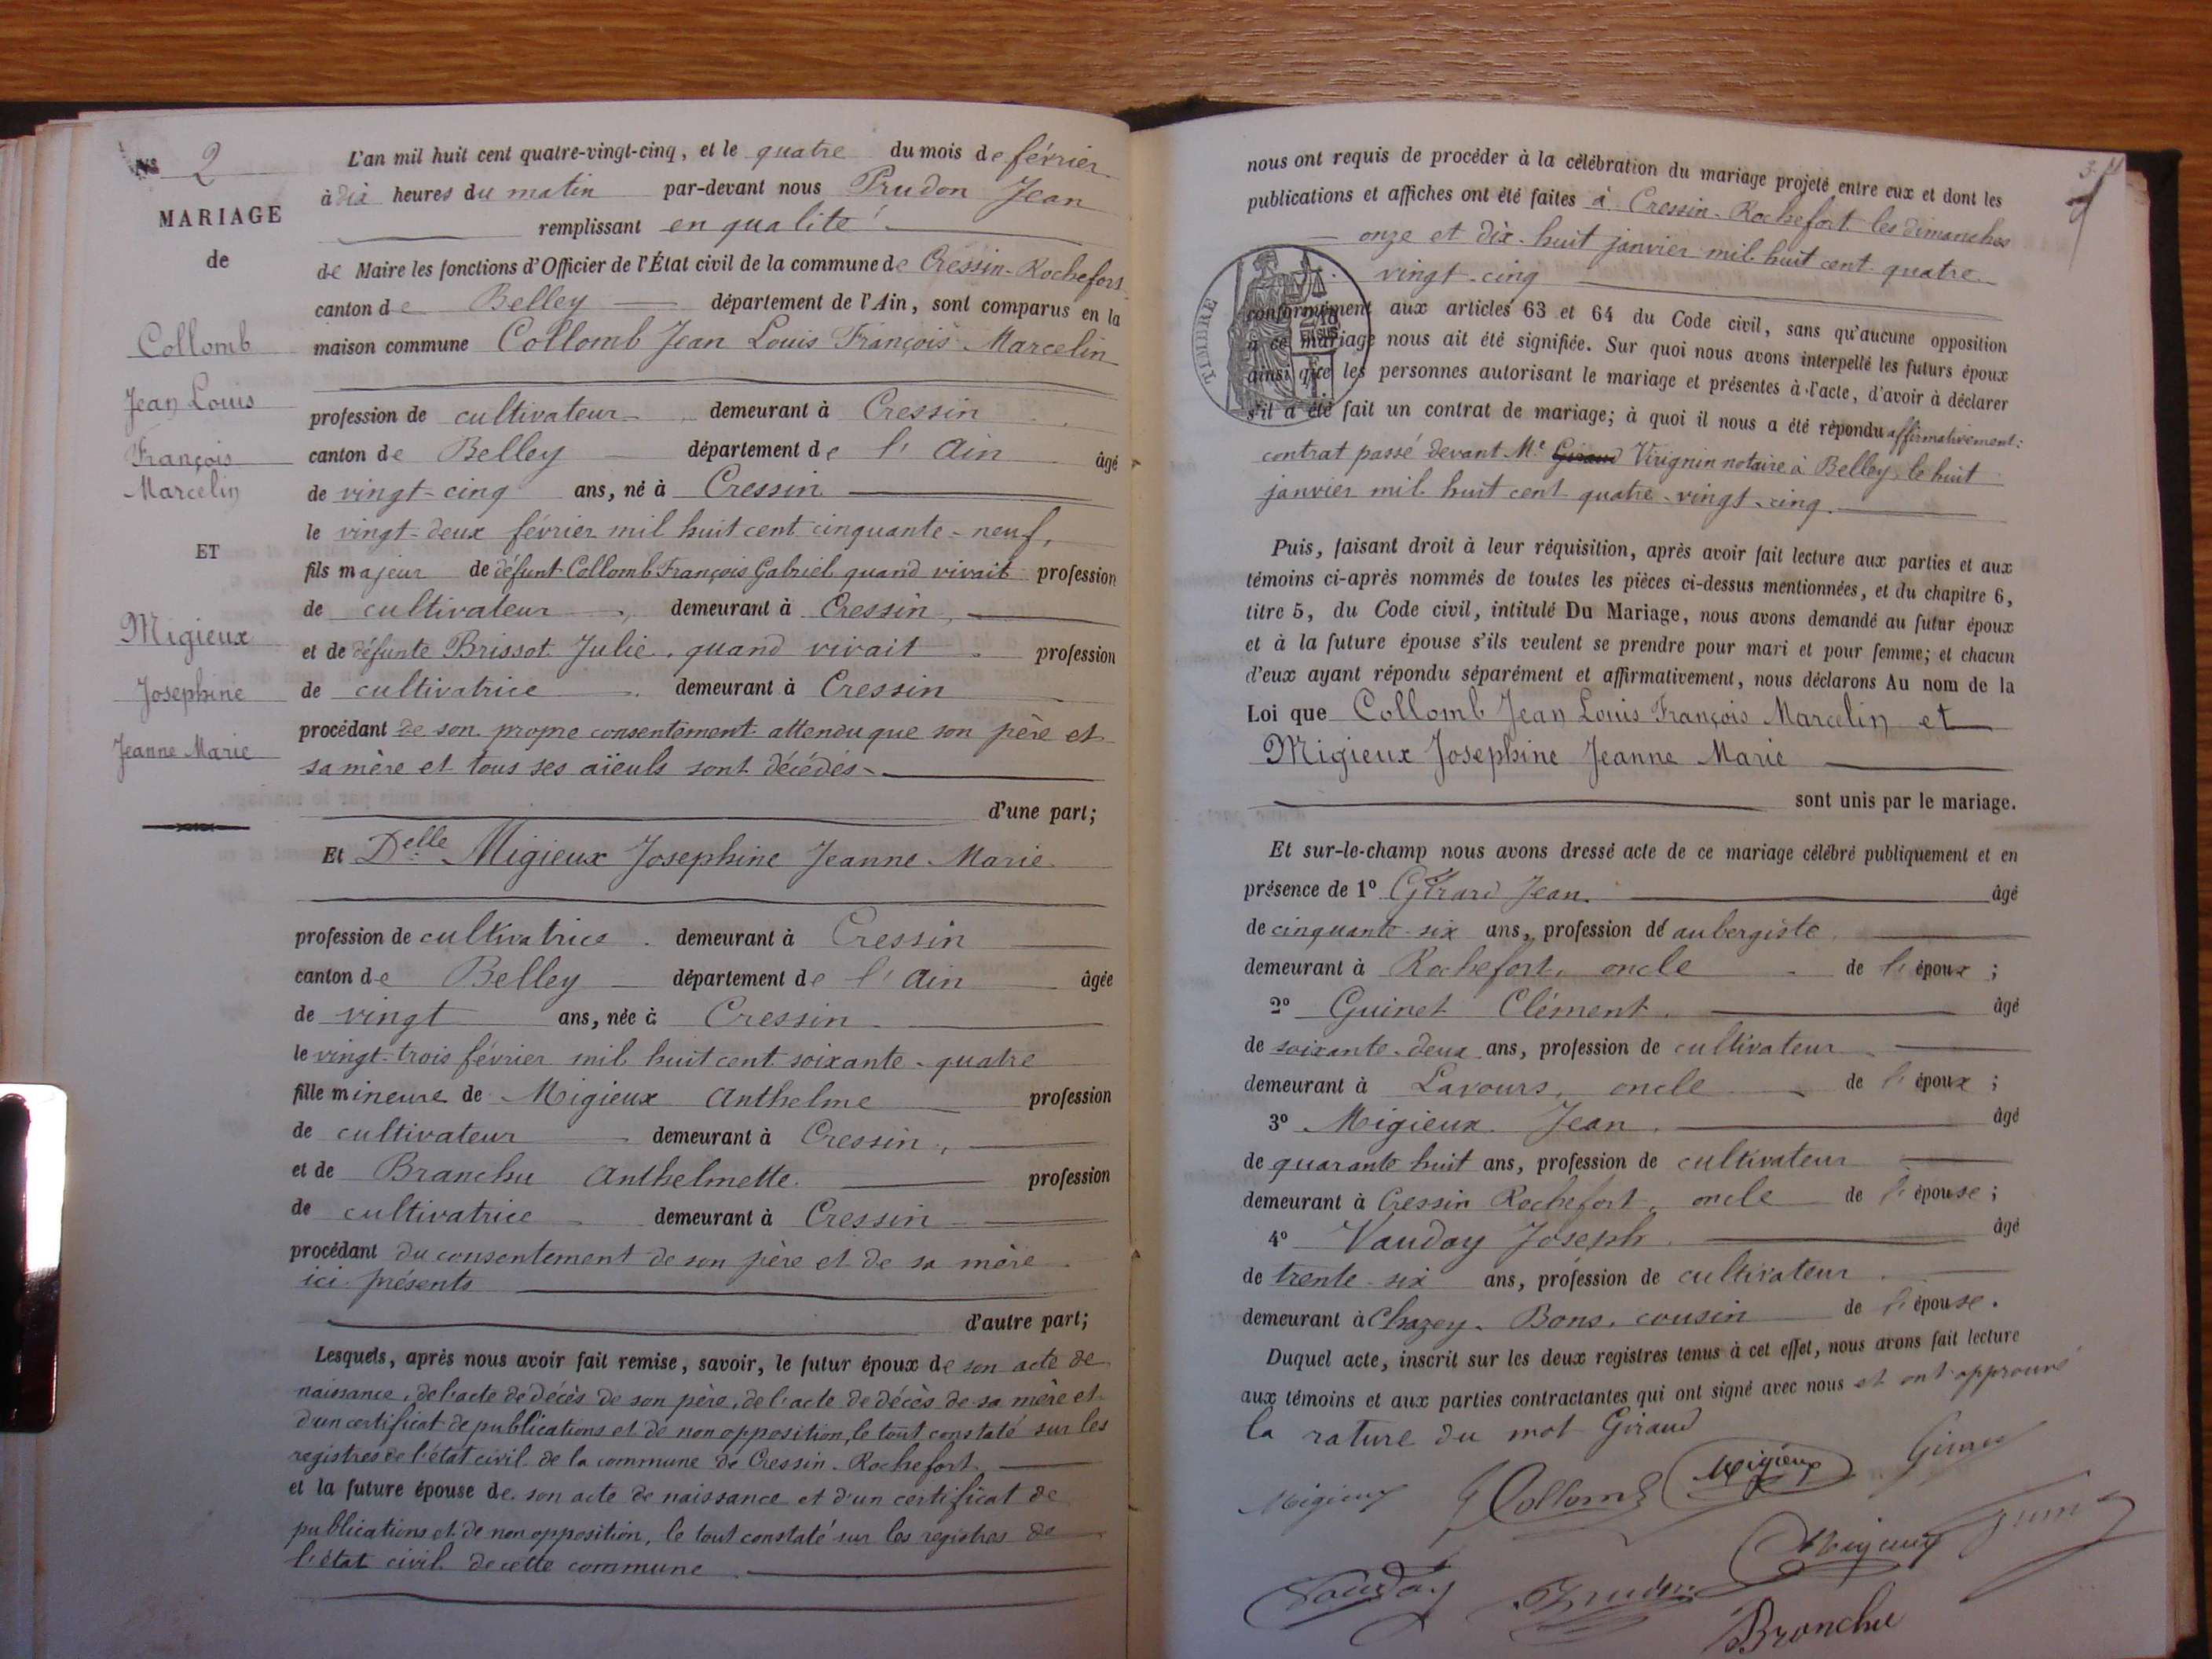 No 2
MARIAGE
de
Collomb
Jean Louis
François
Marcelin
ET
Migieux
Josephine
Jeanne Marie
L'an mil huit cent quatre-vingt-cinq, et le quatre du mois de février
à dix heures du matin par-devant nous Prudon Jean
remplissant en qualité
de Maire les fonctions d'Officier de l'État civil de la commune de Cressin-Rochefort
canton de Belley département de l'Ain, sont comparus en la
maison commune Collomb Jean Louis François Marcelin
profession de cultivateur demeurant à Cressin
canton de Belley département de l'Ain âgé
de vingt-cinq ans, né à Cressin
le vingt-deux février mil huit cent cinquante-neuf,
fils majeur de défunt Collomb François Gabriel quand vivait profession
de cultivateur, demeurant à Cressin,
et de défunte Brissot Julie, quand vivait profession
de cultivatrice demeurant à Cressin
procédant de son propre consentement attendu que son père et
sa mère et tous ses aïeuls sont décédés
d'une part;
Et Delle Migieux Josephine Jeanne Marie
profession de cultivatrice demeurant à Cressin
canton de Belley département de l'Ain âgée
de vingt ans, née à Cressin
le vingt-trois février mil huit cent soixante-quatre
fille mineure de Migieux Anthelme profession
de cultivateur demeurant à Cressin,
et de Branchu Anthelmette profession
de cultivatrice demeurant à Cressin
procédant du consentement de son père et de sa mère
ici présents
d'autre part;
Lesquels, après nous avoir fait remise, savoir, le futur époux de son acte de
naissance, de l'acte de décès de son père, de l'acte de décès de sa mère et
d'un certificat de publications et de non opposition, le tout constaté sur les
registres de l'état civil de la commune de Cressin-Rochefort
et la future épouse de son acte de naissance et d'un certificat de
publications et de non opposition, le tout constaté sur les registres de
l'état civil de cette commune
nous ont requis de procéder à la célébration du mariage projeté entre eux et dont les
publications et affiches ont été faites à Cressin-Rochefort les dimanches
onze et dix-huit janvier mil huit cent quatre
vingt-cinq
TIMBRE
conformément aux articles 63 et 64 du Code civil, sans qu'aucune opposition
à ce mariage nous ait été signifiée. Sur quoi nous avons interpellé les futurs époux
ainsi que les personnes autorisant le mariage et présentes à l'acte, d'avoir à déclarer
s'il a été fait un contrat de mariage; à quoi il nous a été répondu affirmativement:
contrat passé devant Me Giraud Virignin notaire à Belley, le huit
janvier mil huit cent quatre-vingt-cinq.
Puis, faisant droit à leur réquisition, après avoir fait lecture aux parties et aux
témoins ci-après nommés de toutes les pièces ci-dessus mentionnées, et du chapitre 6,
titre 5, du Code civil, intitulé Du Mariage, nous avons demandé au futur époux
et à la future épouse s'ils veulent se prendre pour mari et pour femme; et chacun
d'eux ayant répondu séparément et affirmativement, nous déclarons Au nom de la
Loi que Collomb Jean Louis François Marcelin et
Migieux Josephine Jeanne Marie
sont unis par le mariage.
Et sur-le-champ nous avons dressé acte de ce mariage célébré publiquement et en
présence de 1o Gérard Jean. âgé
de cinquante-six ans, profession d'aubergiste
demeurant à Rochefort, oncle de l'époux;
2o Guinet Clément. âgé
de soixante-deux ans, profession de cultivateur
demeurant à Lavours, oncle de l'époux;
3o Migieux Jean. âgé
de quarante huit ans, profession de cultivateur
demeurant à Cressin Rochefort, oncle de l'épouse;
4o Vauday Joseph. âgé
de trente-six ans, profession de cultivateur
demeurant à Chazey-Bons, cousin de l'épouse.
Duquel acte, inscrit sur les deux registres tenus à cet effet, nous avons fait lecture
aux témoins et aux parties contractantes qui ont signé avec nous et ont approuvé
la rature du mot Giraud
Migieux Collomb Migieux
Migieux
Vauday Prudon
Branchu